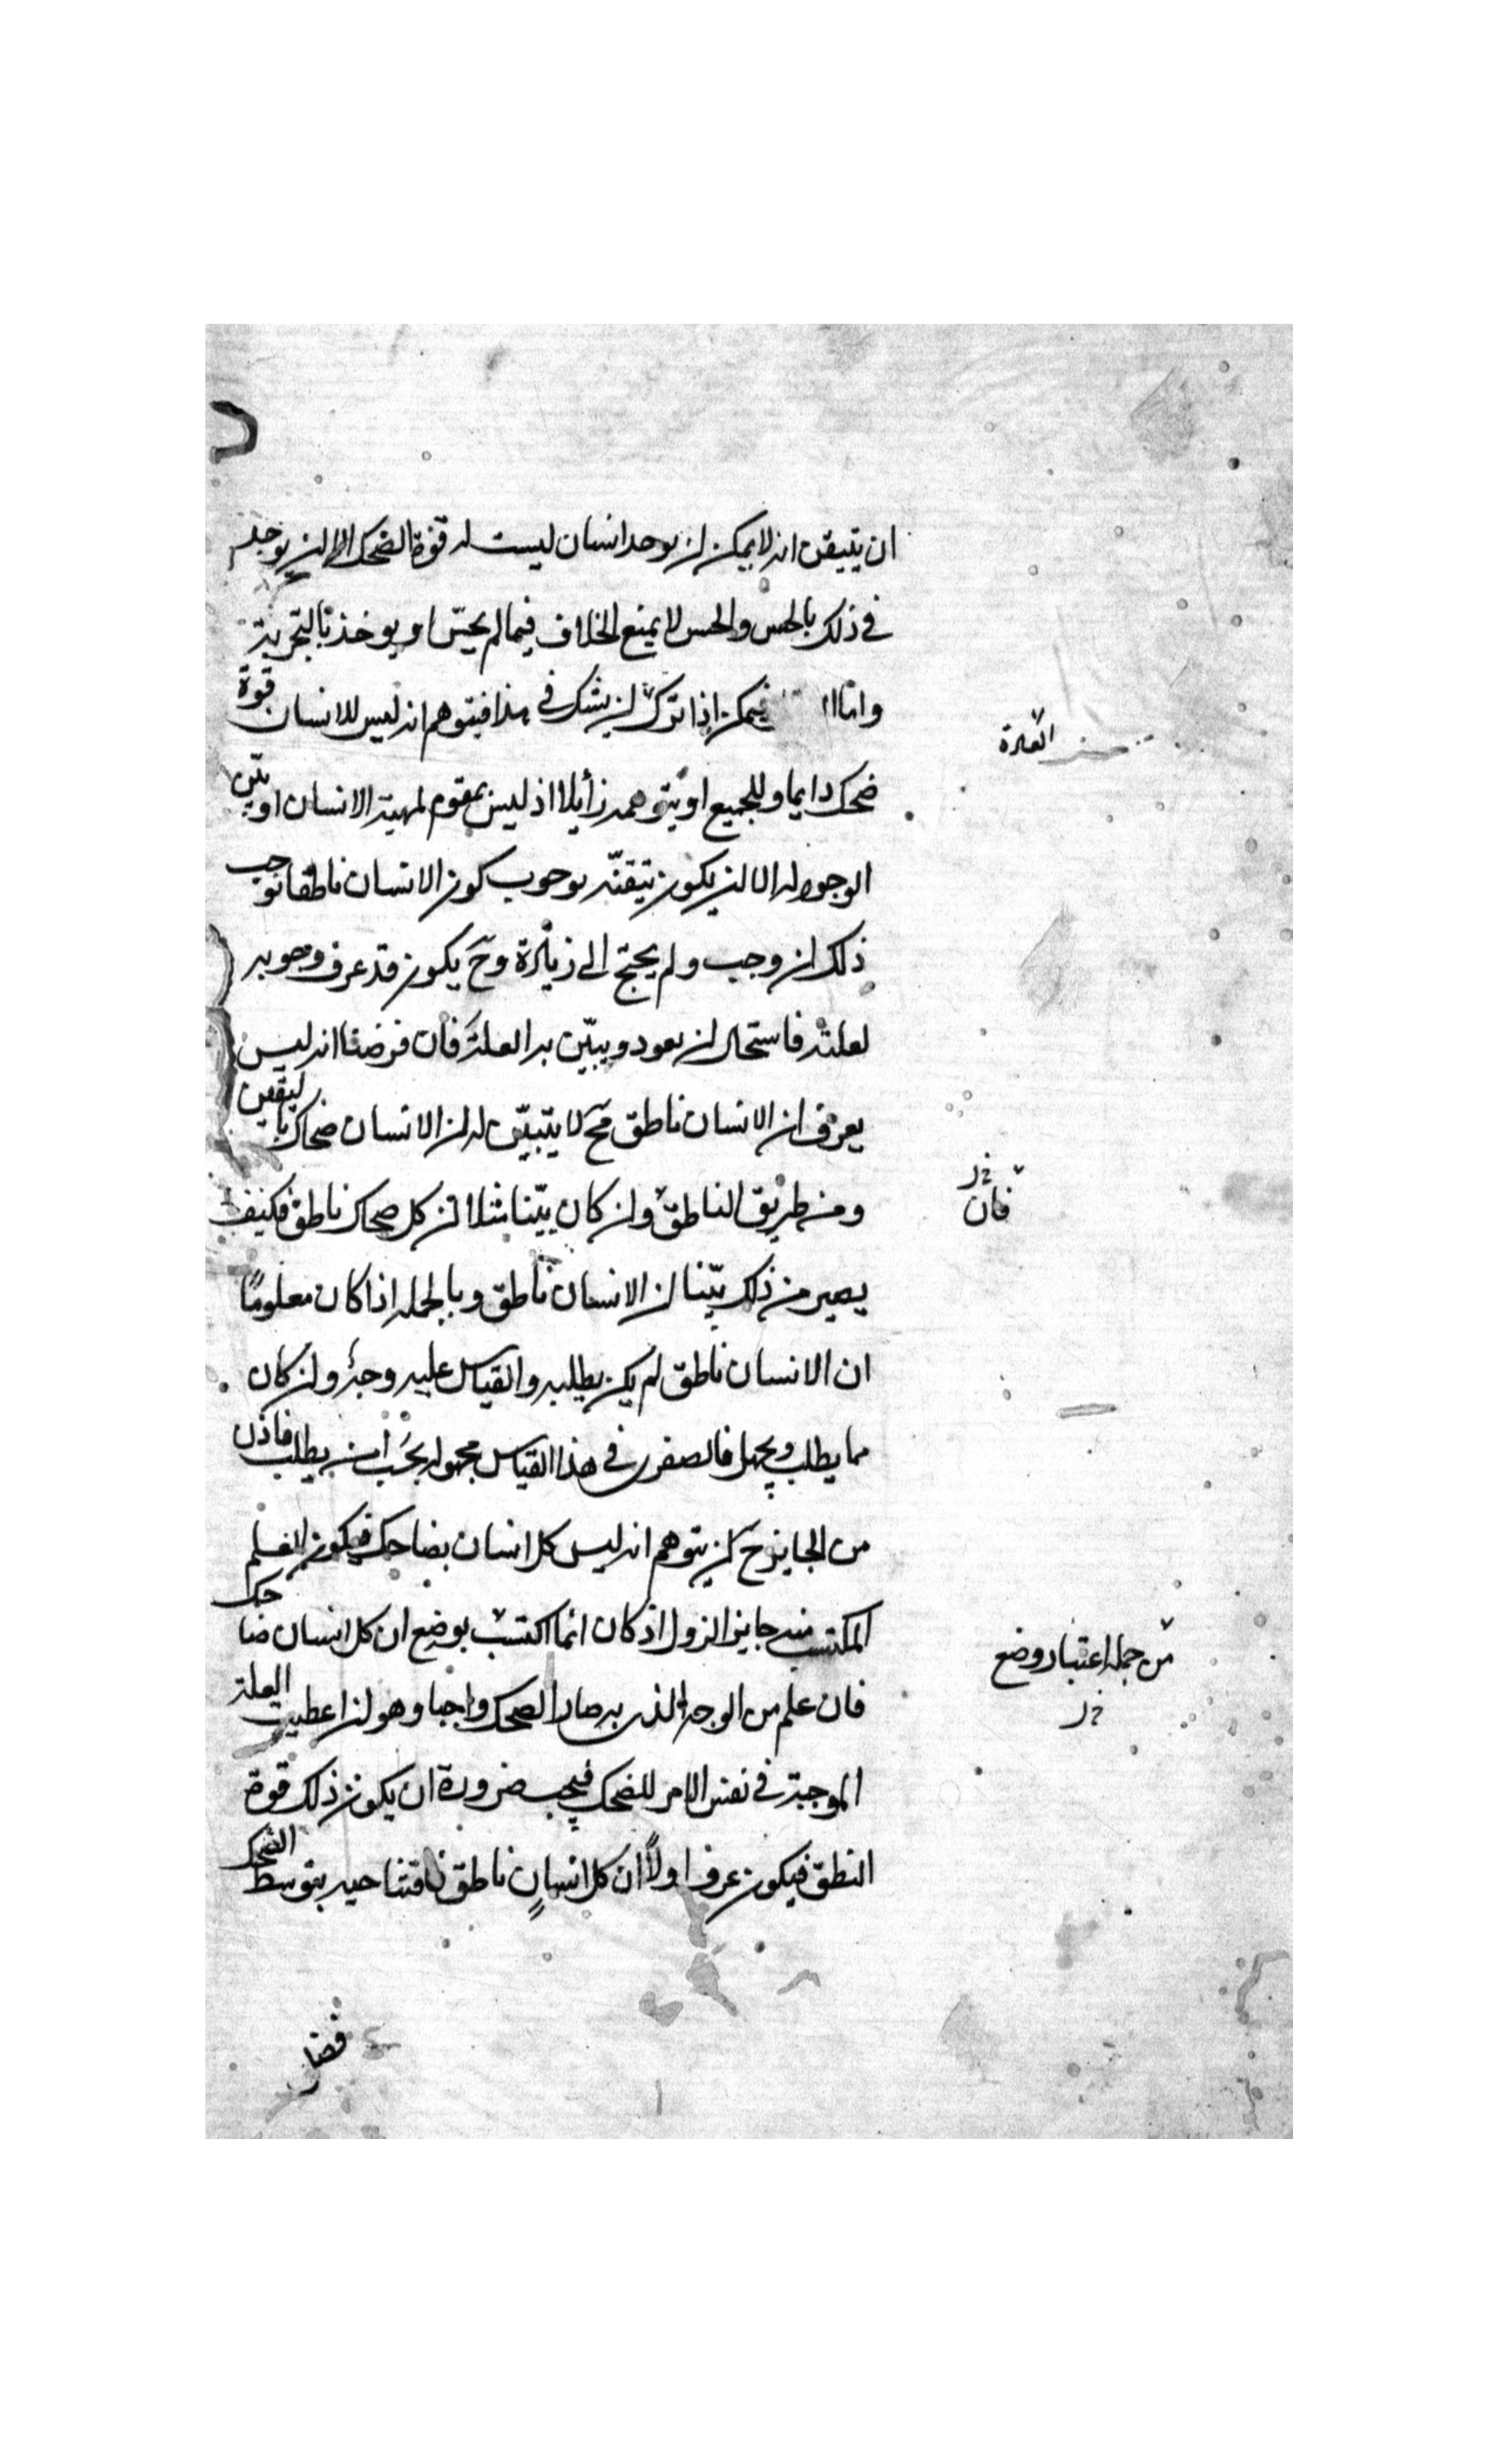 ان يتيقن انه لا يمكن ان يوجد انسان ليست له قوة الضحك الا ان يوجد
في ذلك بالحس والحس لا يمنع الخلاف فيما لم يحسّ او يوخذ بالتجربة
واما فيمكن اذا ترك ان يشك في هذا فيتوهم انه ليس للانسان قوة
العادة
ضحك دايما وللجميع او يتوهمه زايلا اذ ليس بمقوم لمهية الانسان او بيّن
الوجود له الا ان يكون تيقنّه بوجوب كون الانسان ناطقا نوجب
ذلك ان وجب ولم يحتج الى زيادة وحَ يكون قد عرف وجوبه
لعلته فاستحال ان يعود ويبيّن به العلة فان فرضنا انه ليس
يعرف ان الانسان ناطق فحَ لا يتبيّن له ان الانسان ضحاك باليقين
ومن طريق الناطق وان كان بيّنا مثلا ان كل ضحاك ناطق فكيف
فان
يصير من ذلك بيّنا ان الانسان ناطق وبالجمله اذا كان معلومًا
ان الانسان ناطق لم يكن يطلب والقياس عليه وجه وان كان
مما يطلب ويجهل فالصغرى في هذا القياس مجهوله يجب ان يطلب فاذن
من الجايز حَ ان يتوهم انه ليس كل انسان بضاحك فيكون العلم
المكتسب منه جايز الزول اذ كان انما اكتسب بوضع ان كل انسان ضاحك
من جمله اعتبار وضع
فان علم من الوجه الذى به صار الضحك واجبا وهو ان اعطيت العلة
الموجبة في نفس الامر للضحك فيجب ضرورة ان يكون ذلك قوة
النطق فيكون عرف اولاً ان كل انسانٍ ناطق بتوسط الضحك